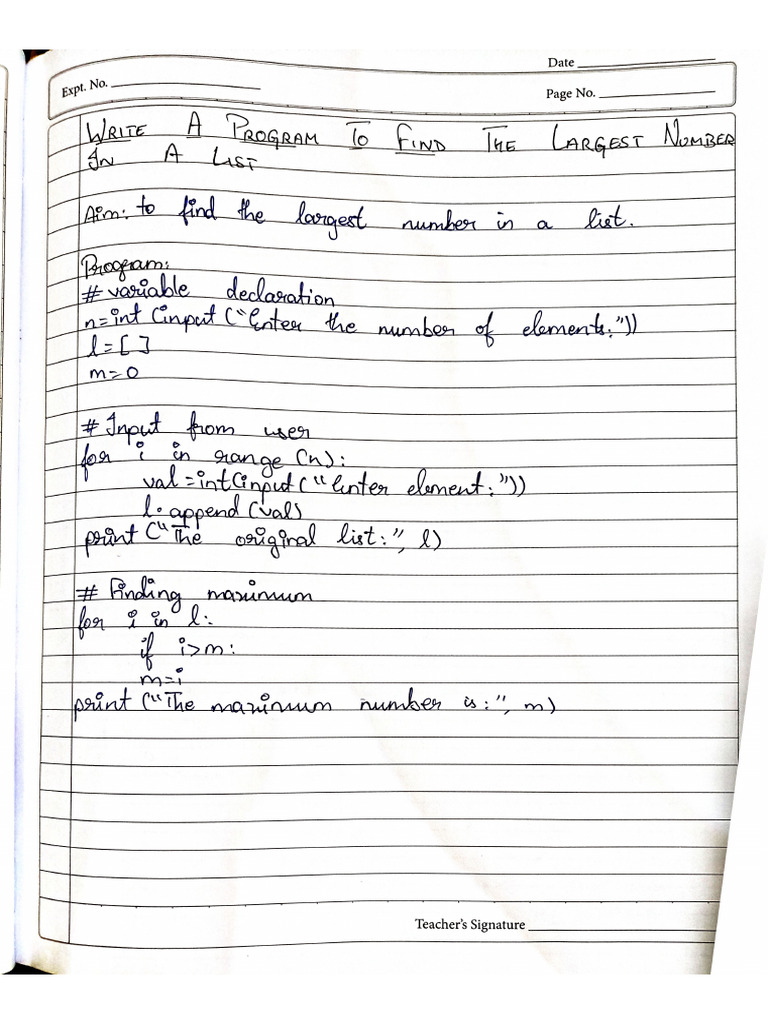 Date
Expt. No.
Page No.
WRITE A PROGRAM TO FIND THE LARGEST NUMBER
IN A LIST
Aim: to find the largest number in a list.
Program:
# variable declaration
n=int(input("Enter the number of elements:"))
l=[]
m=0
# Input from user
for i in range(n):
val=int(input("Enter element:"))
l.append(val)
print("The original list:", l)
# Finding maximum
for i in l:
if i>m:
m=i
print("The maximum number is:", m)
Teacher's Signature